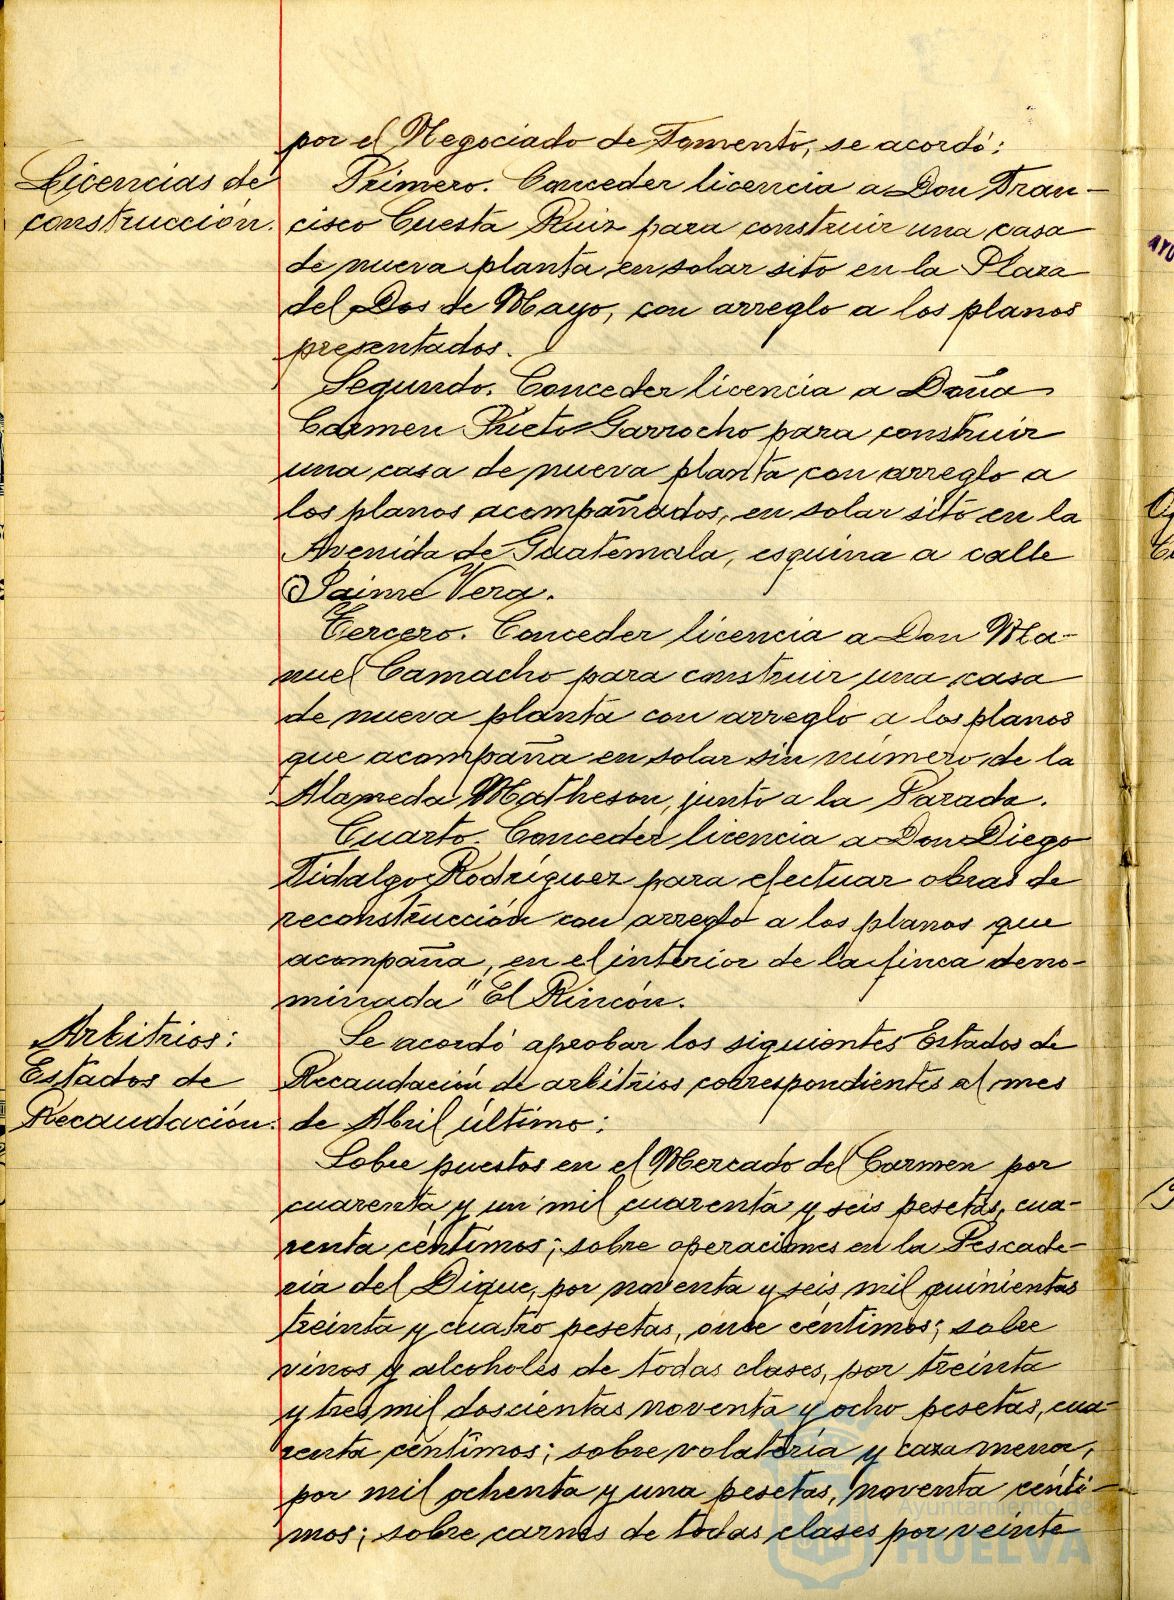 por el Negociado de Fomento, se acordó:
Licencias de
construcción.
Primero. Conceder licencia a Don Fran-
cisco Cuesta Ruiz para construir una casa
de nueva planta en solar sito en la Plaza
del Dos de Mayo, con arreglo a los planos
presentados.
Segundo. Conceder licencia a Doña
Carmen Prieto Garrocho para construir
una casa de nueva planta con arreglo a
los planos acompañados, en solar sito en la
Avenida de Guatemala, esquina a calle
Jaime Vera.
Tercero. Conceder licencia a Don Ma-
nuel Camacho para construir una casa
de nueva planta con arreglo a los planos
que acompaña en solar sin número, de la
Alameda Matheson, junto a la Parada.
Cuarto. Conceder licencia a Don Diego
Fidalgo Rodríguez para efectuar obras de
reconstrucción con arreglo a los planos que
acompaña, en el interior de la finca deno-
minada "El Rincón.
Arbitrios:
Estados de
Recaudación.
Se acordó aprobar los siguientes Estados de
Recaudación de arbitrios correspondientes al mes
de Abril último:
Sobre puestos en el Mercado del Carmen por
cuarenta y un mil cuarenta y seis pesetas, cua-
renta céntimos; sobre operaciones en la Pescade-
ria del Dique, por noventa y seis mil quinientas
treinta y cuatro pesetas, once céntimos; sobre
vinos y alcoholes de todas clases, por treinta
y tres mil doscientas noventa y ocho pesetas, cua-
renta céntimos; sobre volatería y caza menor,
por mil ochenta y una pesetas, noventa cénti-
mos; sobre carnes de todas clases por veinte
Ayuntamiento de
HUELVA